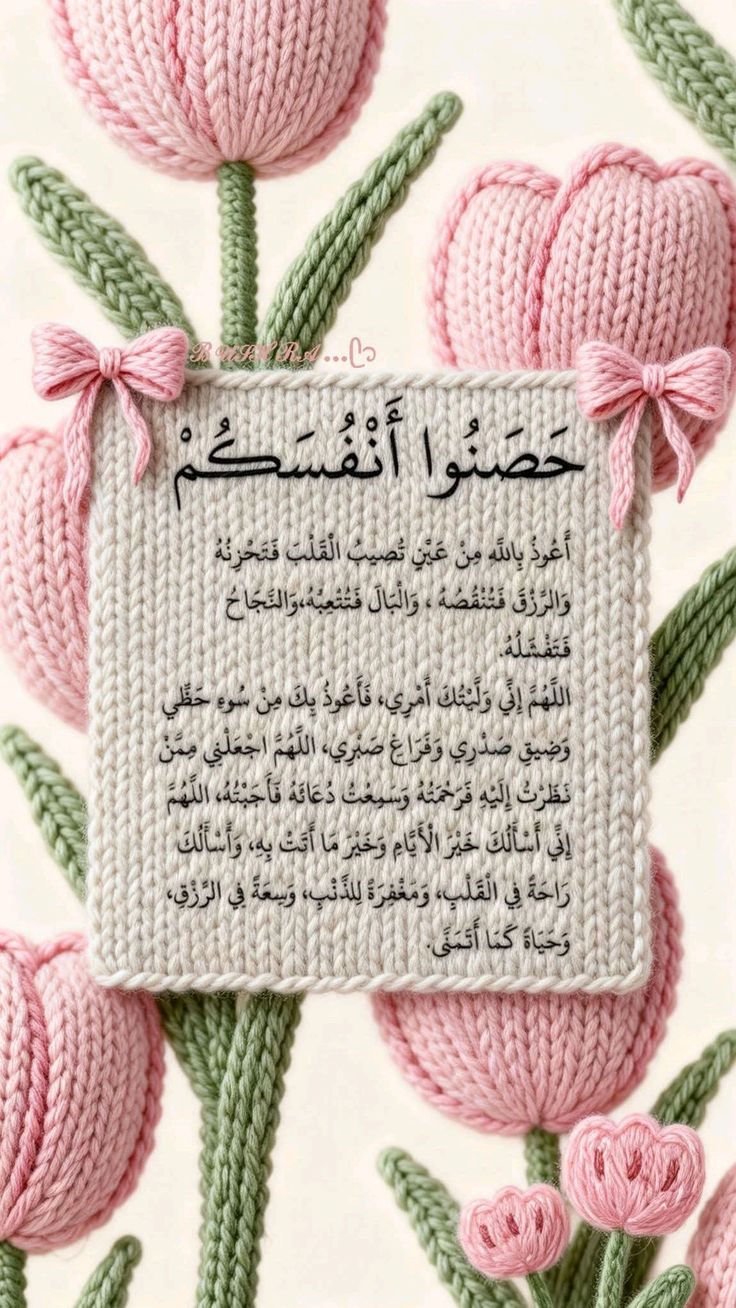 BUSHRA...
حَصَنُوا أَنْفُسَكُمْ
أَعُوذُ بِاللَّهِ مِنْ عَيْنٍ تُصِيبُ الْقَلْبَ فَتَحْزِنُهُ
وَالرِّزْقَ فَتُنْقُصُهُ ، وَالْبَالَ فَتُتْعِبُهُ،وَالنَّجَاحُ
فَتَفْشَلُهُ.
اللَّهُمَّ إِنِّي وَلَّيْتُكَ أَمْرِي، فَأَعُوذُ بِكَ مِنْ سُوءِ حَظِّي
وَضِيقِ صَدْرِي وَفَرَاغِ صَبْرِي، اللَّهُمَّ اجْعَلْنِي مِمَّنْ
نَظَرْتُ إِلَيْهِ فَرَحْمَتُهُ وَسَمِعْتُ دُعَائَهُ فَأَجَبْتُهُ، اللَّهُمَّ
إِنِّي أَسْأَلُكَ خَيْرَ الْأَيَّامِ وَخَيْرَ مَا أَتَتْ بِهِ، وَأَسْأَلُكَ
رَاحَةً فِي الْقَلْبِ، وَمَغْفِرَةً لِلذَّنْبِ، وَسِعَةً فِي الرِّزْقِ،
وَحَيَاةً كَمَا أَتَمَنَّى.